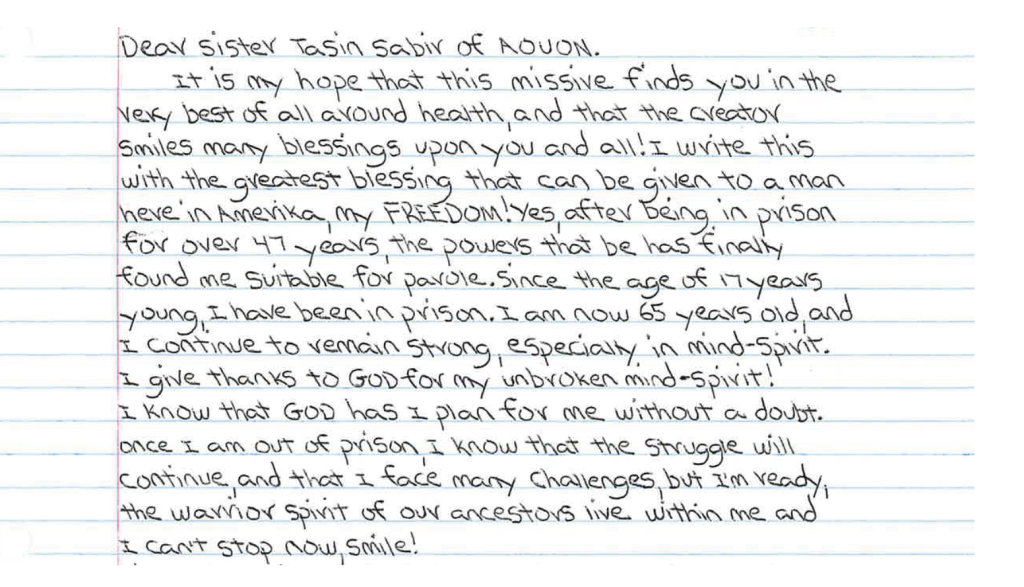 Dear Sister Tasin Sabir of AOUON.
It is my hope that this missive finds you in the
very best of all around health, and that the creator
smiles many blessings upon you and all! I write this
with the greatest blessing that can be given to a man
here in Amerika, my FREEDOM! Yes, after being in prison
for over 47 years, the powers that be has finally
found me suitable for parole. Since the age of 17 years
young, I have been in prison. I am now 65 years old, and
I continue to remain strong, especially in mind-spirit.
I give thanks to GOD for my unbroken mind-spirit!
I know that GOD has I plan for me without a doubt.
once I am out of prison, I know that the struggle will
continue, and that I face many challenges, but I'm ready,
the warrior spirit of our ancestors live within me and
I can't stop now, smile!